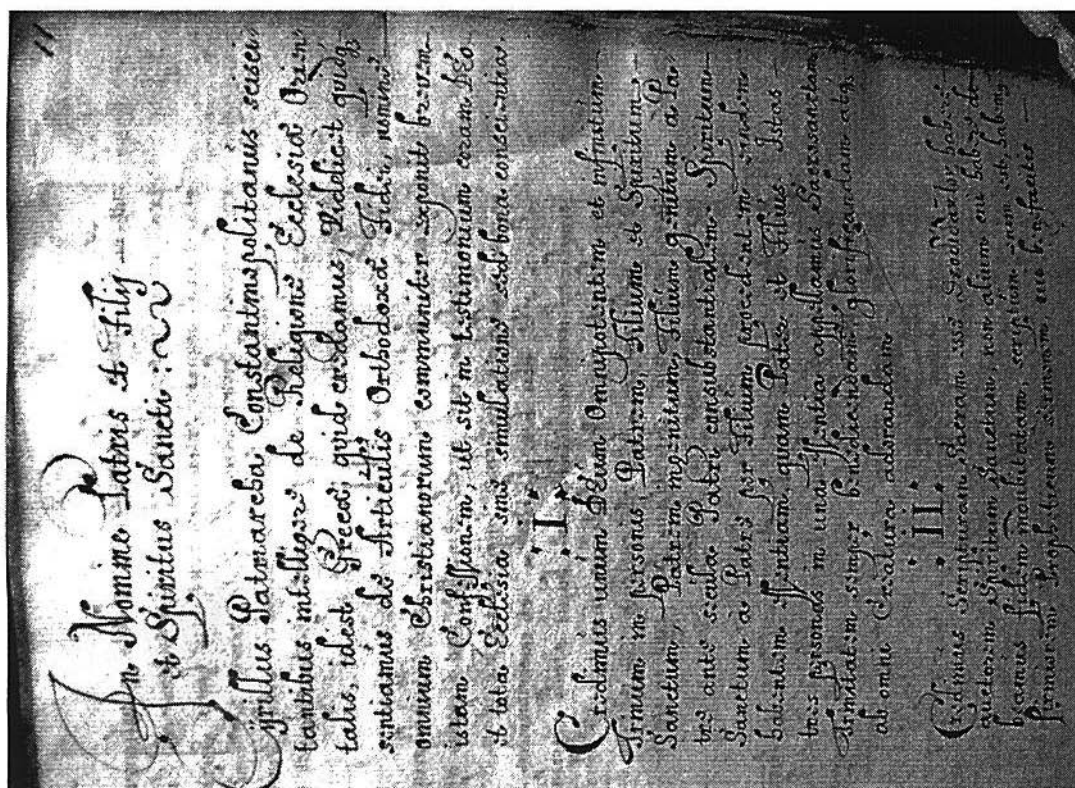 11
In Nomine Patris et Filij
et Spiritus Sancti :
Cyrillus Patriarcha Constantinopolitanus scisci
tantibus intelligere de Religione Ecclesiæ Orien
talis, idest Grecæ, quid credamus, Videlicet quidq
sentiamus de Articulis Orthodoxæ Fidei, nomine
omnium Christianorum communiter exponit brevem
istam Confessionem, ut sit in testimonium coram Deo
et tota Ecclesia sine simulatione sed bona conscientia.
I
Credimus unum Deum Omnipotentem et infinitum
Trinum in personis, Patrem, Filium et Spiritum
Sanctum, Patrem ingenitum, Filium genitum a Pa
tre ante secula Patri consubstantialem. Spiritum
Sanctum a Patre per Filium procedentem eandem
habentem essentiam quam Pater et Filius. Istas
tres personas in una essentia appellamus Sacrosanctam
Trinitatem semper benedicendam, glorificandam atq
ab omni Creatura adorandam
II
Credimus Scripturam Sacram esse
auctorem Spiritum Sanctum, non alium
fidem indubitatam, scriptum est
firmiorem Propheticum sermonem cui benefacitis